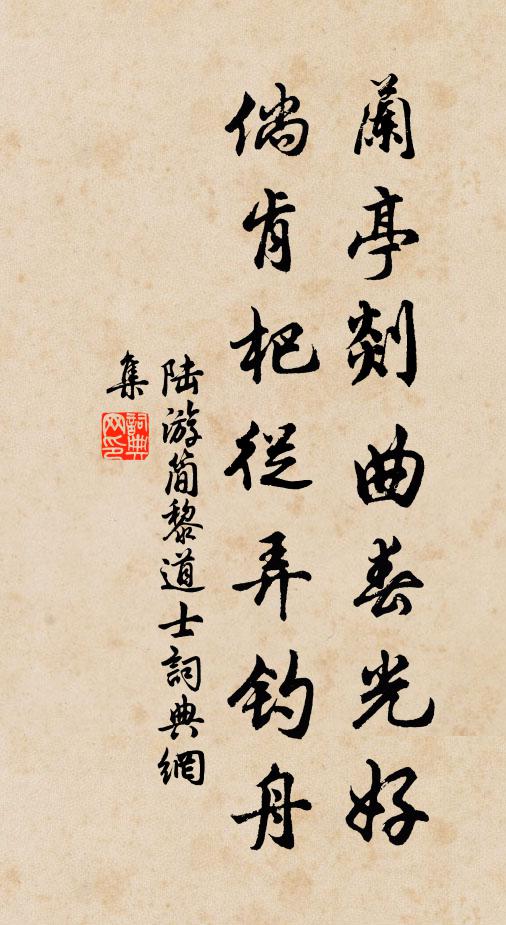 蘭亭剡曲春光好
倘肯杷從弄釣舟
陆游简黎道士詞典網
集
詞典网印